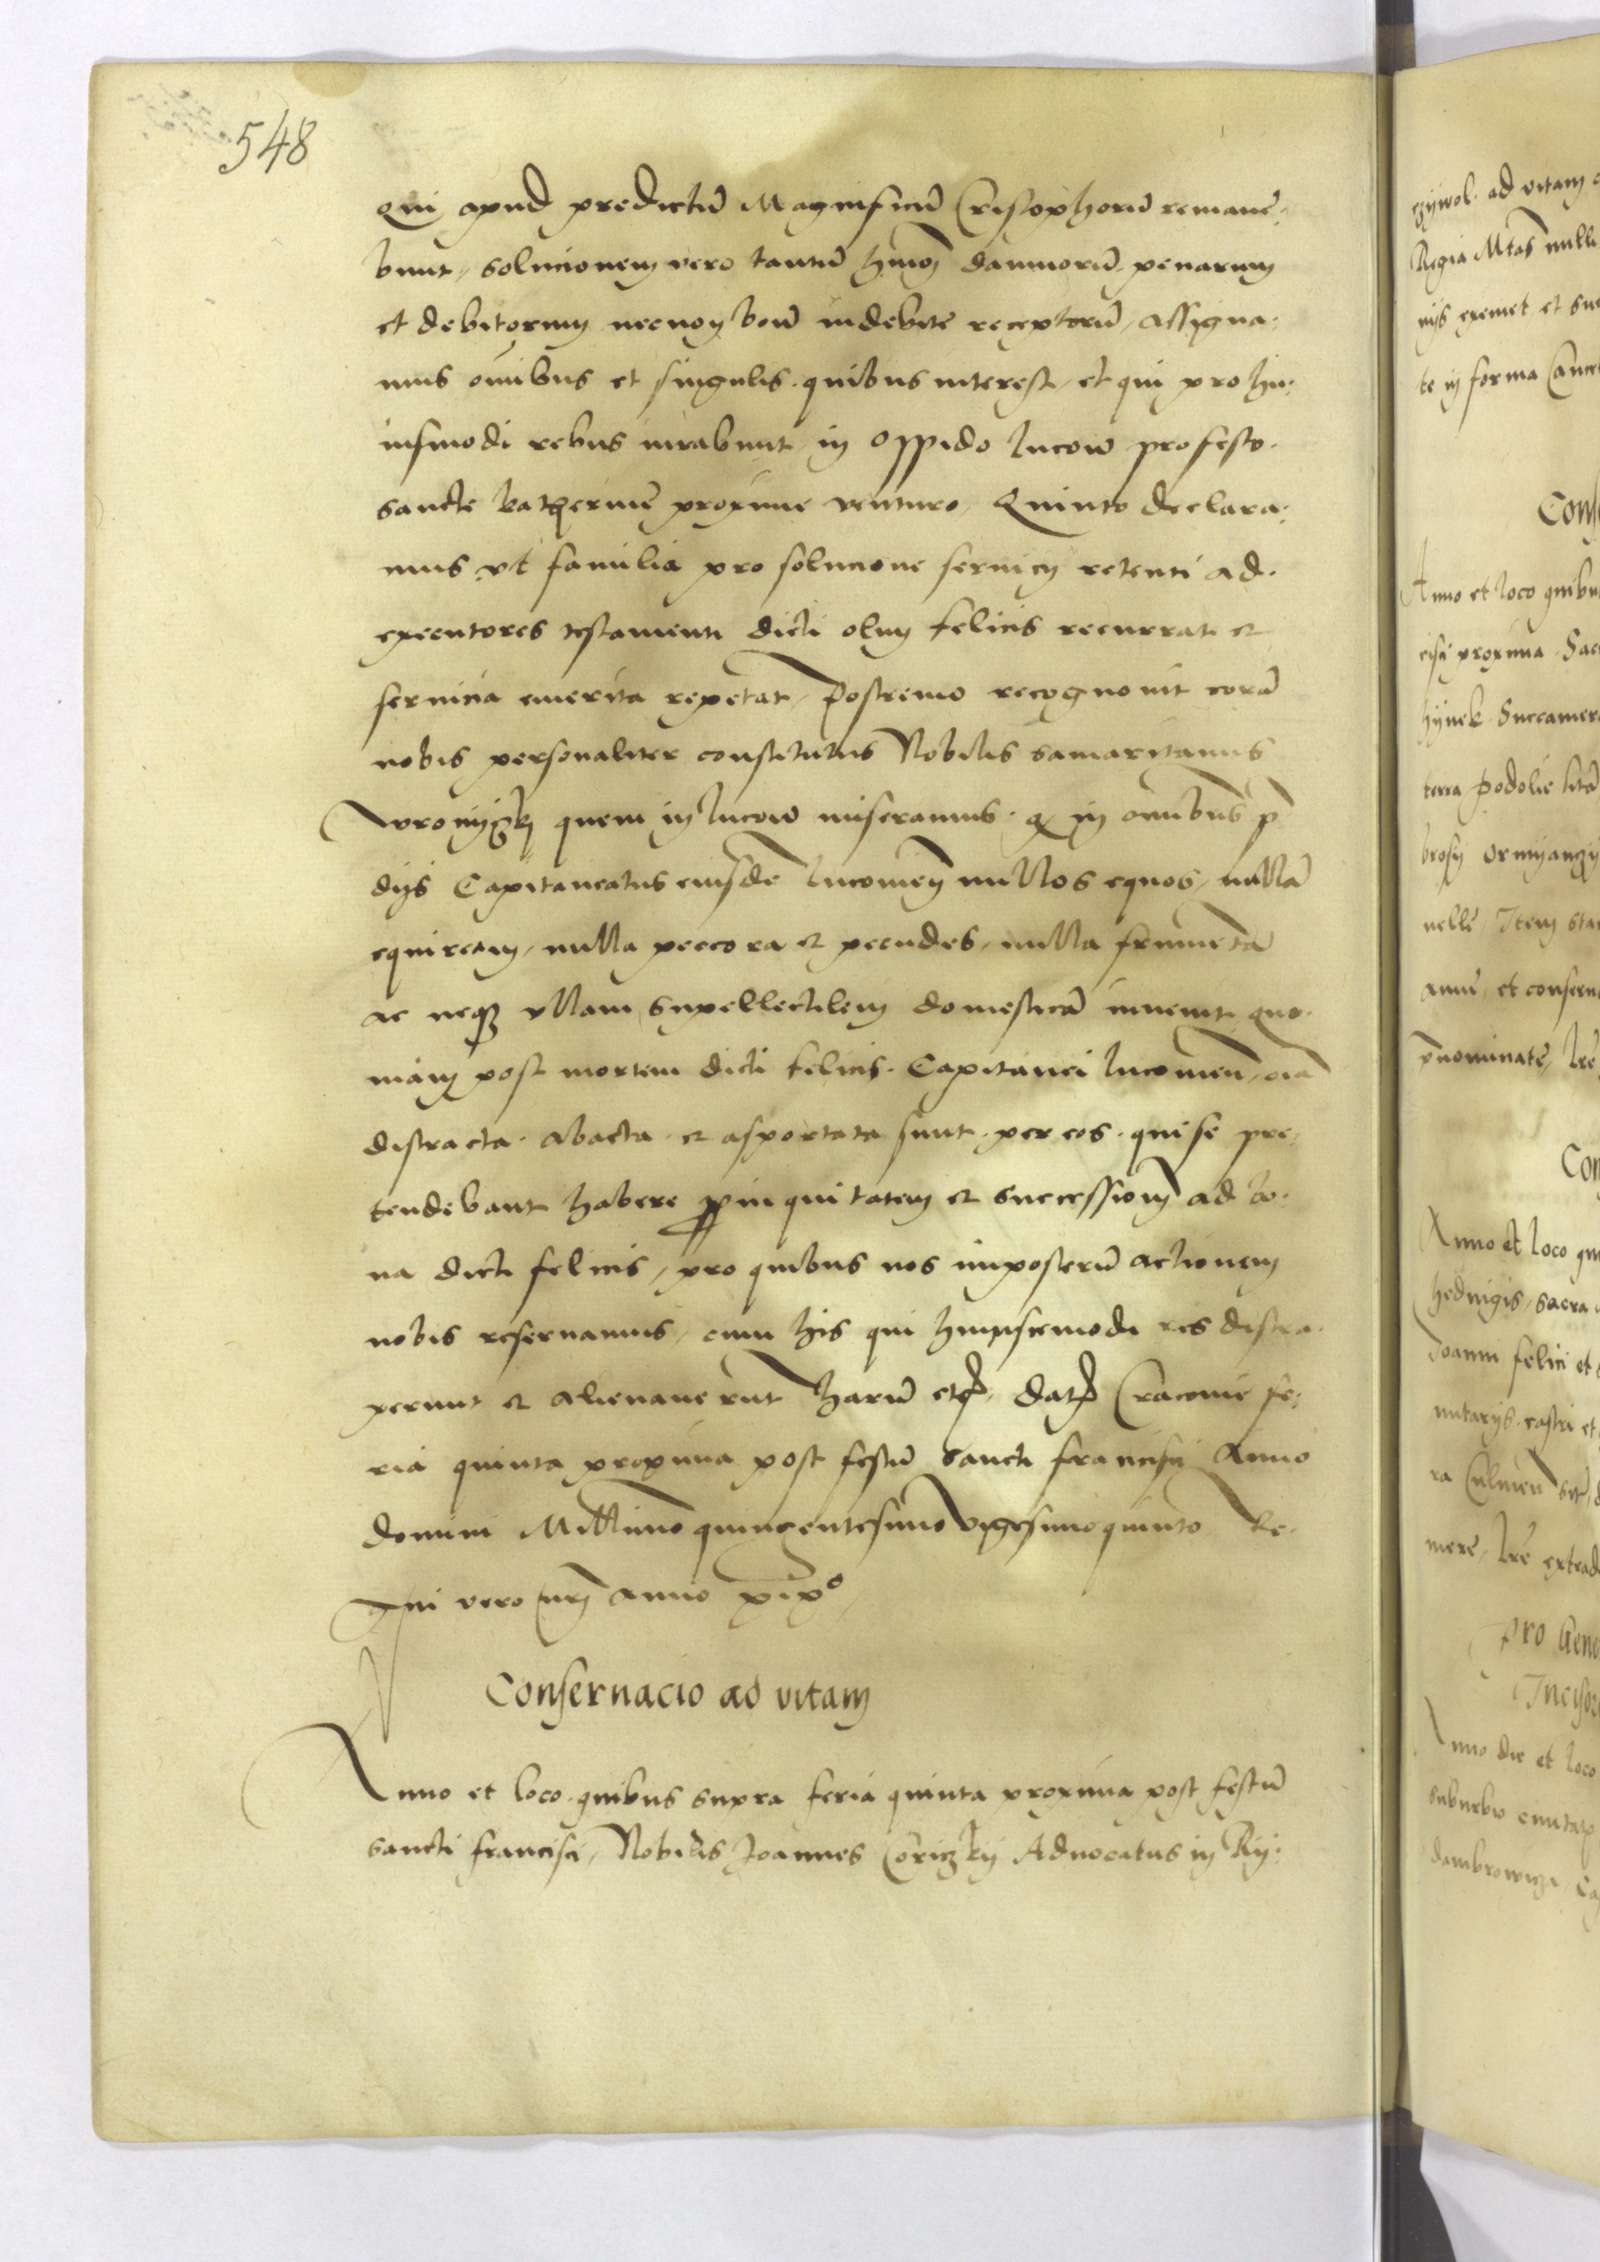 548
Qui apud predictū Magnificū Cristophorū remane-
bunt, solucionem vero tantū hmōi damnorū penarum
et debitorum necnon boū indebite receptorū, assigna-
mus omībus et singulis quibus interest, et qui pro hu-
iusmodi rebus iurabunt in oppido Lucow profesto
sancte katherinē proxime venturo, Quinto declara-
mus vt familia pro solucione seruicij retenti ad
executores testamenti dicti olim felicis recurrat et
seruicia emerita repetat, Postremo recognouit corā
nobis personaliter constitutus Nobilis samaritanus
quem in Lucow miseramus q in omībus p̄
dijs Capitaneatus eiusdē Lucouieñ nullos equos, nullā
equiream, nulla peccora et pecudes, nulla frumēta
ac neqз vllam suppellectilem domesticā inuenit quo-
niam post mortem dicti felicis Capitanei Lucouieñ, oīa
distracta abacta et asportata sunt per eos qui se pre-
tendebant habere ꝓpinquitatem et successionē ad bo-
na dicti felicis, pro quibus nos imposterū actionem
nobis reseruamus, cum his qui huiuscemodi res distra-
xerunt et alienauerunt Harū etc. Dat. Cracouie fe-
ria quinta proxima post festū sancti francisci Anno
domini Millīmo quingentesimo vigesimoquinto Re-
gni vero nrī anno xix°
Conseruacio ad vitam
Anno et loco quibus supra feria quinta proxima post festū
sancti francisci, Nobilis Joannes Coriczkij Aduocatus in Rij-
czijwol ad vitam
Regia Mtas nulli
nijs eximet et
te in forma
Anno et loco quibu
proxima
hijnek Succamer
terra podolie
Item
annū et conseru
p̄nominatē, lr̄e
Anno et loco
hedwigis, sacra
Joanni felici et
castri et
mere, lr̄e extrad
pro Gene
Anno die et loco